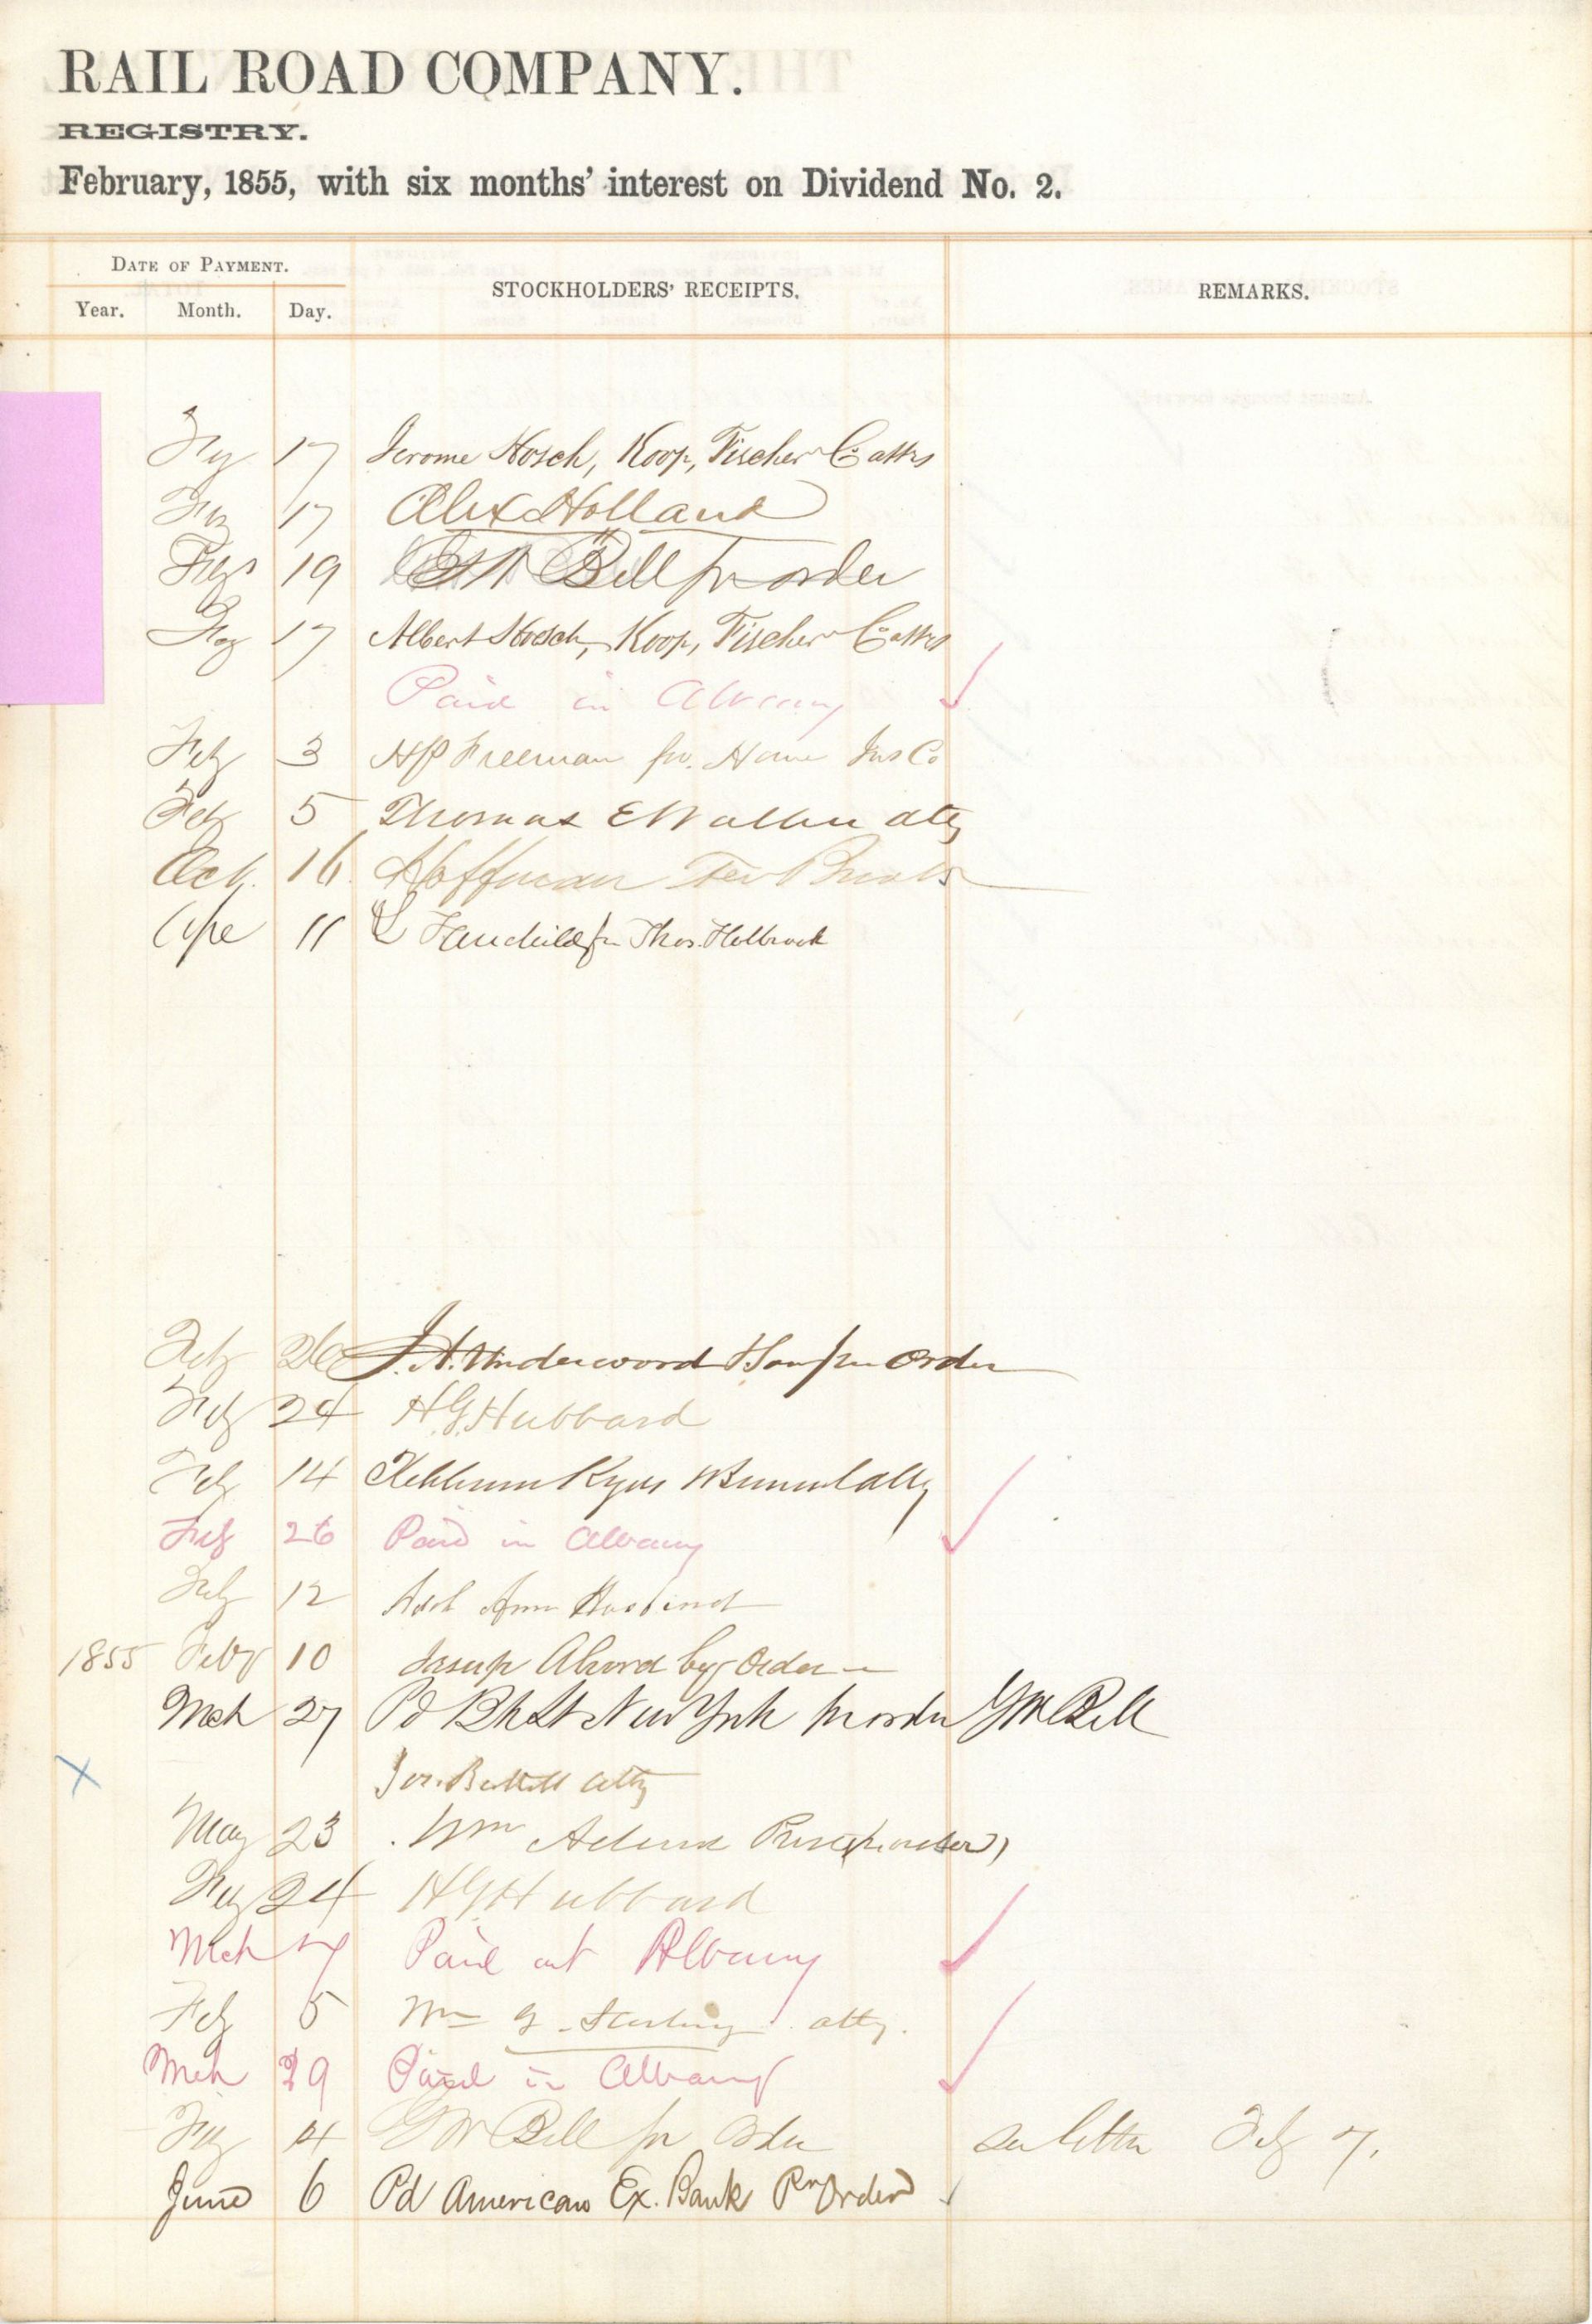 RAIL ROAD COMPANY.
REGISTRY.
February, 1855, with six months' interest on Dividend No. 2.
DATE OF PAYMENT.
STOCKHOLDERS' RECEIPTS.
REMARKS.
Year. Month. Day.
17 Jerome Hosch, Koop, Fischer Co attys
17 Alex Holland
19 Bell pr order
17 Albert Hosch, Koop, Fischer Co attys
Paid in Albany
Feby 3 Freeman for Home Ins Co
Feby 5 Thomas E Walker atty
Oct. 16 Hoffman Ten Broeck
Apr 11 Fanchild for Thos. Holbrook
Feby 26 J. A. Underwood & Son per order
Feby 24 H.G. Hubbard
Feby 14
Feby 26 Paid in Albany
Feby 12 Ann
1855 Feby 10 Jesup Alvord by Order
Mch 27 Pd New York pr order GW Bell
atty
May 23 Wm
Feby 24 H G Hubbard
Mch 7 Paid at Albany
Feby 5 Wm G. Sterling atty.
Mch 29 Paid in Albany
Feby 14 G W Bell pr Order see letter Feby 7.
June 6 Pd American Ex. Bank Pr Order